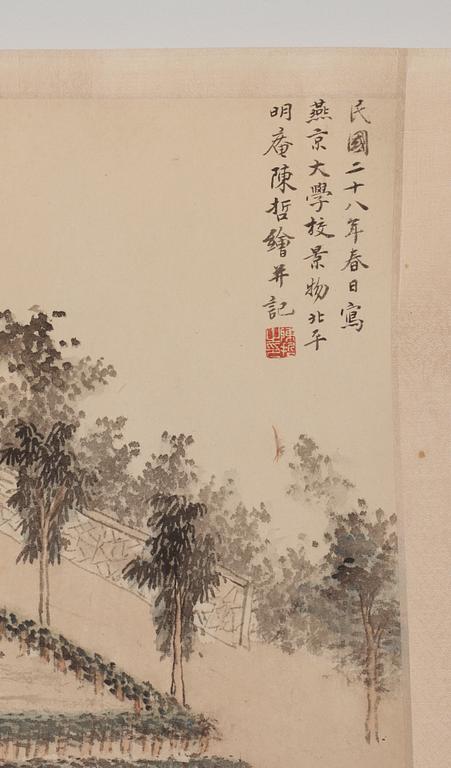 民國二十八年春日寫
燕京大學校景物北平
明庵陳哲繪并記
陳哲之印